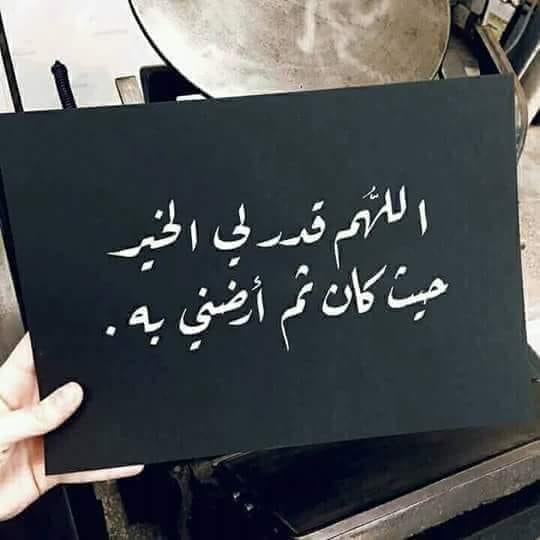 اللهُم قدر لي الخير
حيث كان ثم أرضني به .